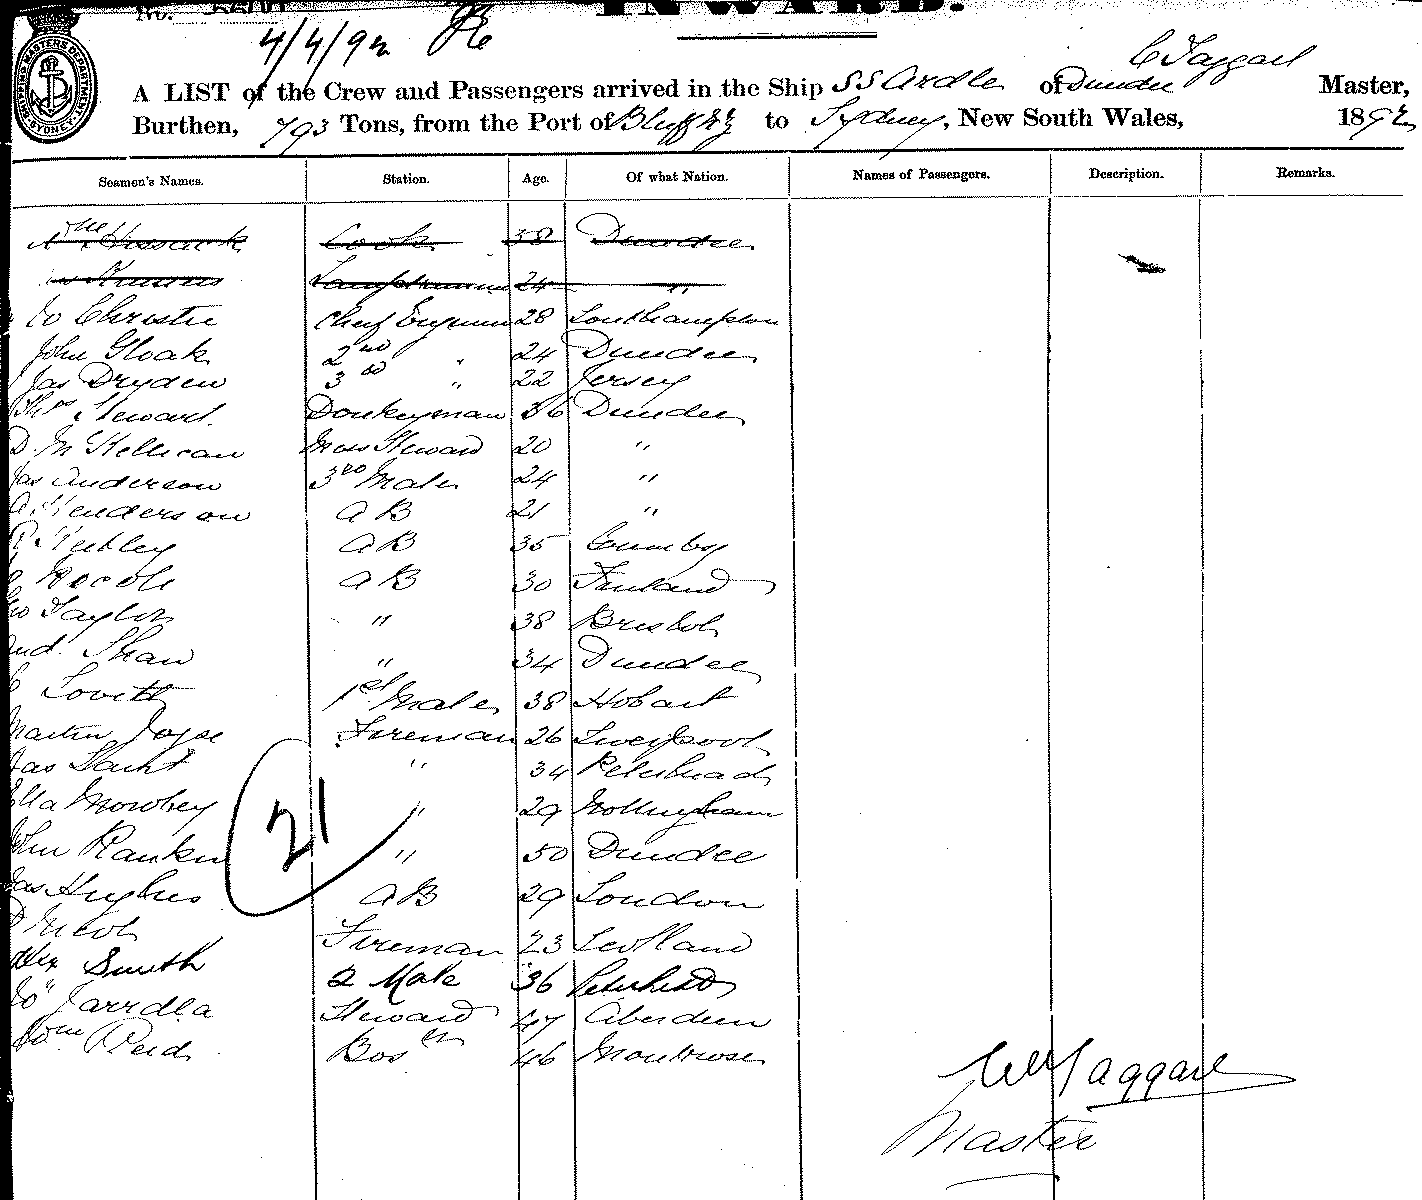 No. INWARD.
4/4/92
SHIPPING MASTERS DEPARTMENT SYDNEY
C Taggart
A LIST of the Crew and Passengers arrived in the Ship SS Ardle of Dundee Master,
Burthen, 793 Tons, from the Port of Bluff NZ to Sydney, New South Wales, 1892
Seamen's Names. Station. Age. Of what Nation. Names of Passengers. Description. Remarks.
Cook 38 Dundee
Lamptrimmer 24 "
Christie Chief Engineer 28 Southampton
John Gloak 2nd " 24 Dundee
Jas Dryden 3rd " 22 Jersey
Stewart Donkeyman 36 Dundee
D. McKellican Mess Steward 20 "
Jas Anderson 3rd Mate 24 "
A Henderson AB 21 "
R AB 35
AB 30 Finland
Geo Taylor " 38 Bristol
And. Shaw " 34 Dundee
Lovett 1st Mate 38 Hobart
Martin Joyce Fireman 26 Liverpool
Jas " 34 Peterhead
Mowbey " 29 Nottingham
John Rankin " 50 Dundee
21
Jas Hughes AB 29 London
D Nicol Fireman 23 Scotland
Alex Smith 2 Mate 36 Peterhead
Jarrdla Steward 47 Aberdeen
Wm Reid Bosn 46 Montrose
Taggart
Master